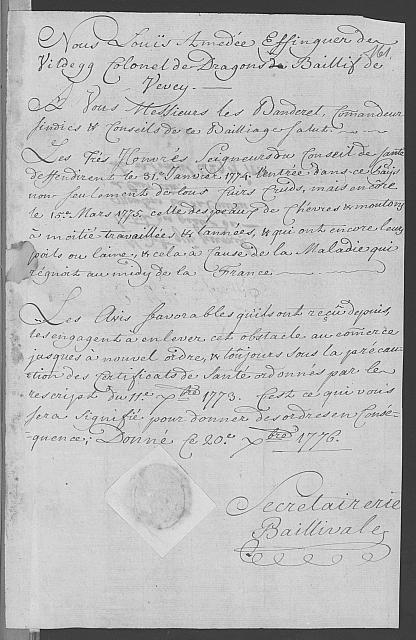 161.
Nous Louïs Amedée Effinguer de
Vildegg Colonel de Dragons & Baillif de
Vevey.
A Vous Messieurs les Banderet, Comandeur
sindics & Conseils de ce Bailliage Salut.
Les Très Honorés Seigneurs du Conseil de santé
deffendirent le 31.e Janvier 1774 l'entrée dans ce païs
non seulement de tous Cuirs Cruds, mais encore
le 15.e Mars 1775, celle des peaux de Chevres & moutons
à moitié travaillées & tannées, & qui ont encore leurs
poils ou laine, & cela à Cause de la Maladie qui
régnoit au midy de la France.
Les Avis favorables qu'ils ont reçu depuis,
les engagent à enlever cet obstacle au comerce
jusques à nouvel ordre, & toujours sous la précau-
tion des Certificats de Santé ordonnés par le
rescript du 11.e Xbre 1773. C'est ce qui vous
sera signifié pour donner des ordres en Consé-
quence; Donné Ce 20.e Xbre 1776.
Secretairerie
Baillivale